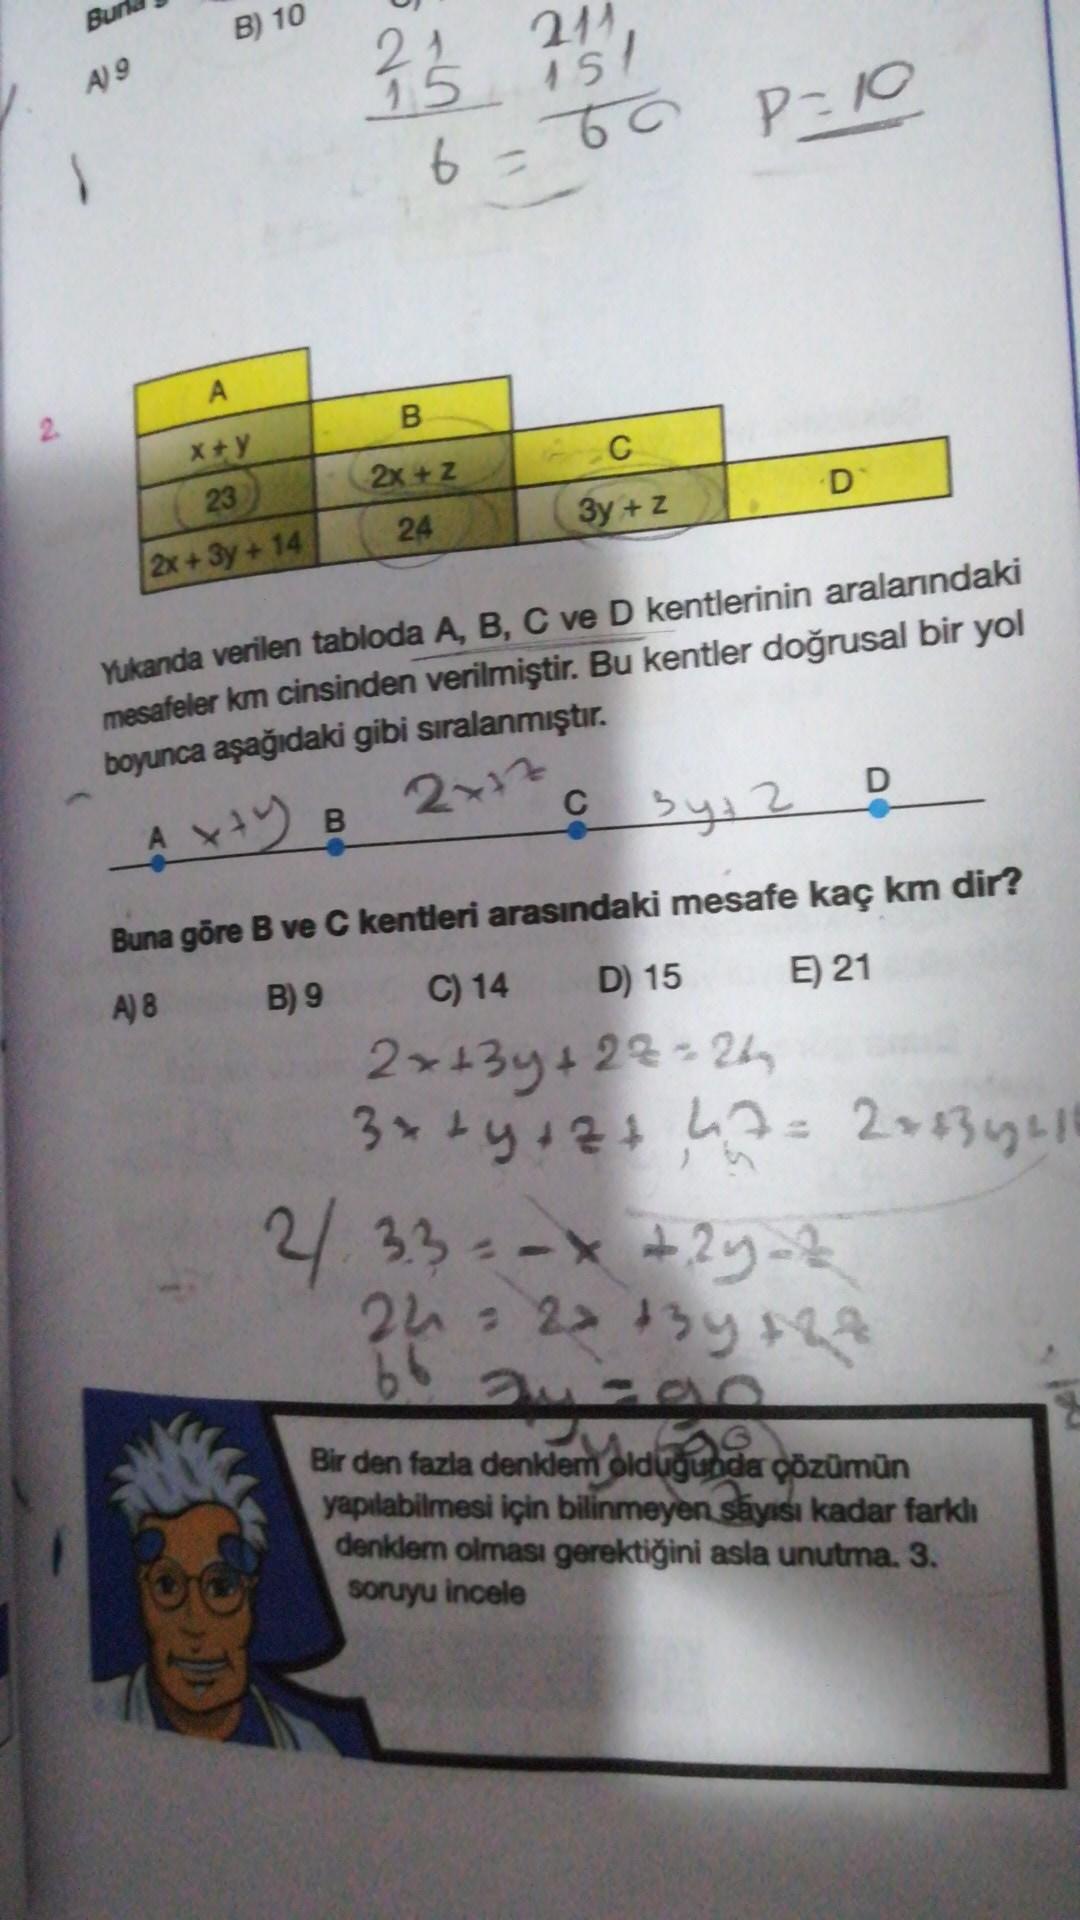 B) 10
A) 9
21 211
15 151
6 = 60
P = 10
2.
A
x + y
B
23
2x + z
C
2x + 3y + 14
24
3y + z
D
Yukarıda verilen tabloda A, B, C ve D kentlerinin aralarındaki
mesafeler km cinsinden verilmiştir. Bu kentler doğrusal bir yol
boyunca aşağıdaki gibi sıralanmıştır.
A x+y B 2x+z C 3y+z D
Buna göre B ve C kentleri arasındaki mesafe kaç km dir?
A) 8 B) 9 C) 14 D) 15 E) 21
2x+3y+2z=24
3x+y+z+ 47 = 2x+3y+1
2/ 33 = -x +2y-z
24 = 2x +3y+2z
66 7y = 90
y 90
Bir den fazla denklem olduğunda çözümün
yapılabilmesi için bilinmeyen sayısı kadar farklı
denklem olması gerektiğini asla unutma. 3.
soruyu incele